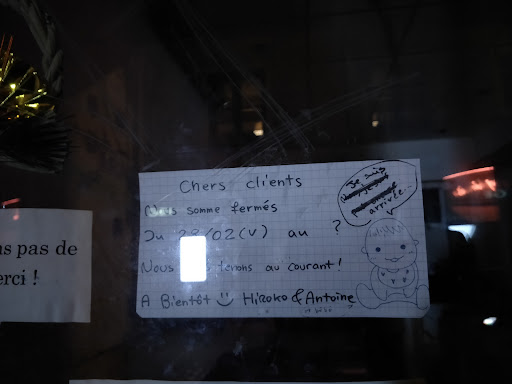 Chers clients
Nous somme fermés
Du 28/02(v) au ?
Nous tenons au courant!
A Bientôt Hiroko & Antoine
et bébé
Je suis
arrivée..
ns pas de
erci !